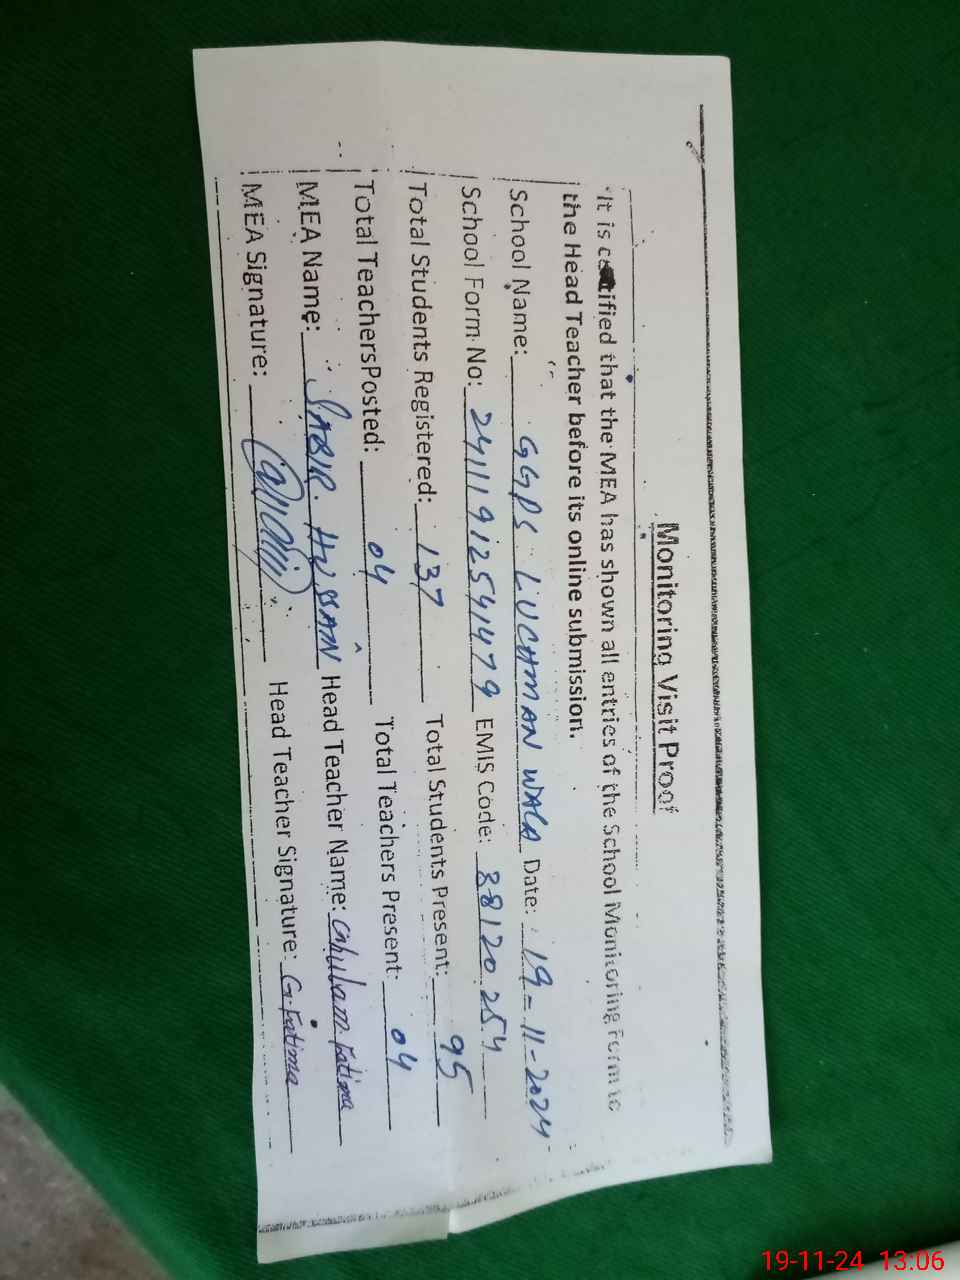 Monitoring Visit Proof
It is certified that the MEA has shown all entries of the School Monitoring Form to
the Head Teacher before its online submission.
School Name: GGPS LUCHMAN WALA Date: 19-11-2024
School Form No: 2411191254 1479 EMIS Code: 38120254
Total Students Registered: 137 Total Students Present: 95
Total TeachersPosted: 04 Total Teachers Present: 04
MEA Name: SABIR HUSSAIN Head Teacher Name: Ghulam Fatima
MEA Signature: Head Teacher Signature: G.Fatima
19-11-24 13:06